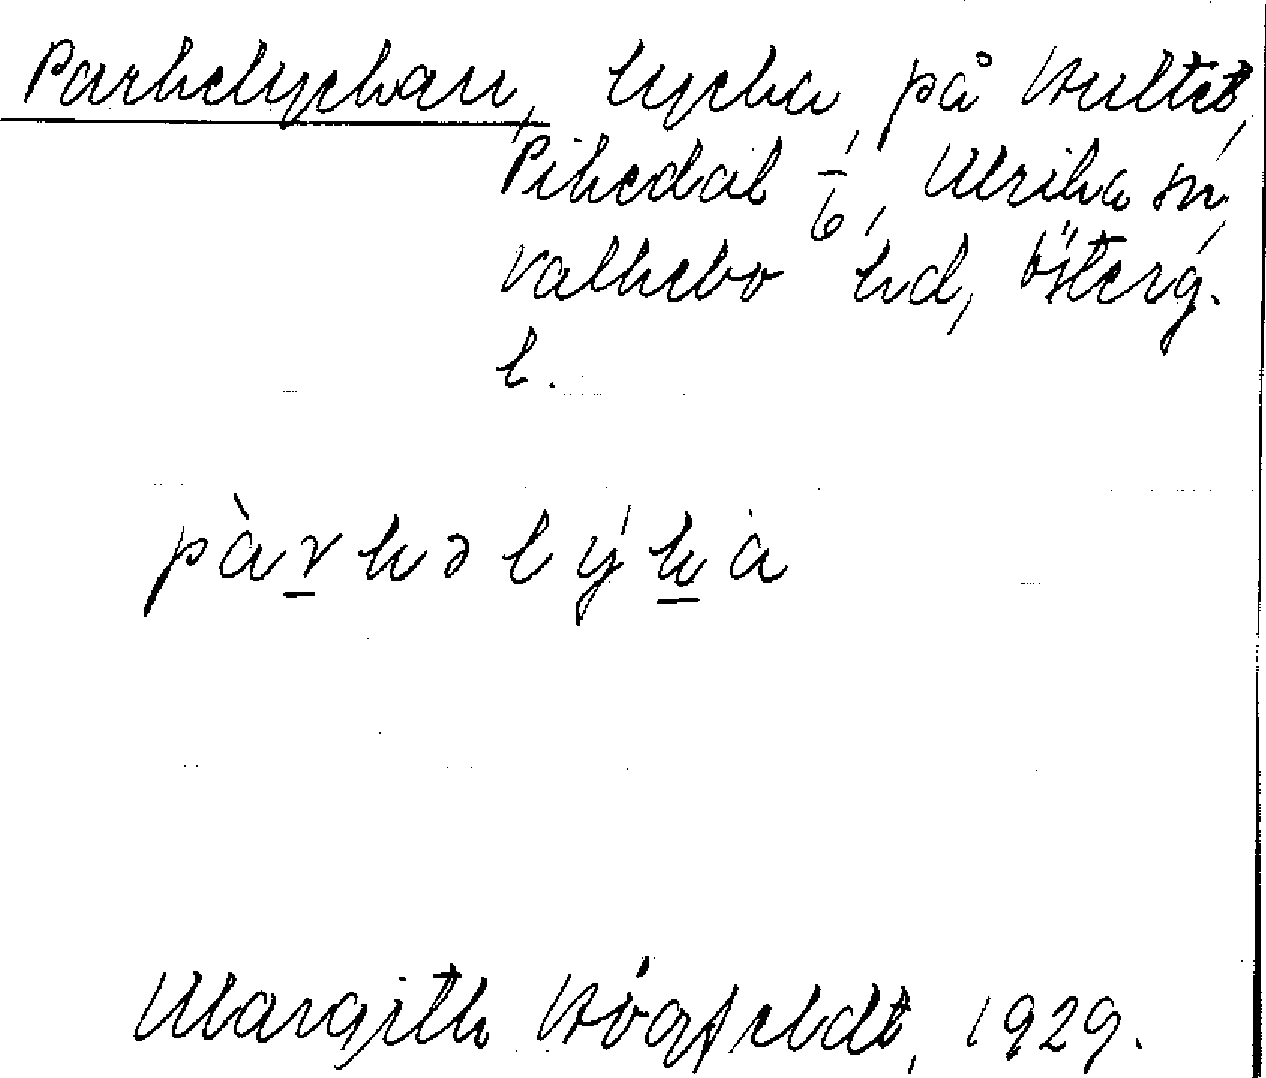 Parkelyckan, lycka på Hultet,
Pikedal 1/6, Ulrika sn,
Valkebo hd, Österg.
l.
pàrkəlýkà
Margith Högfeldt, 1929.